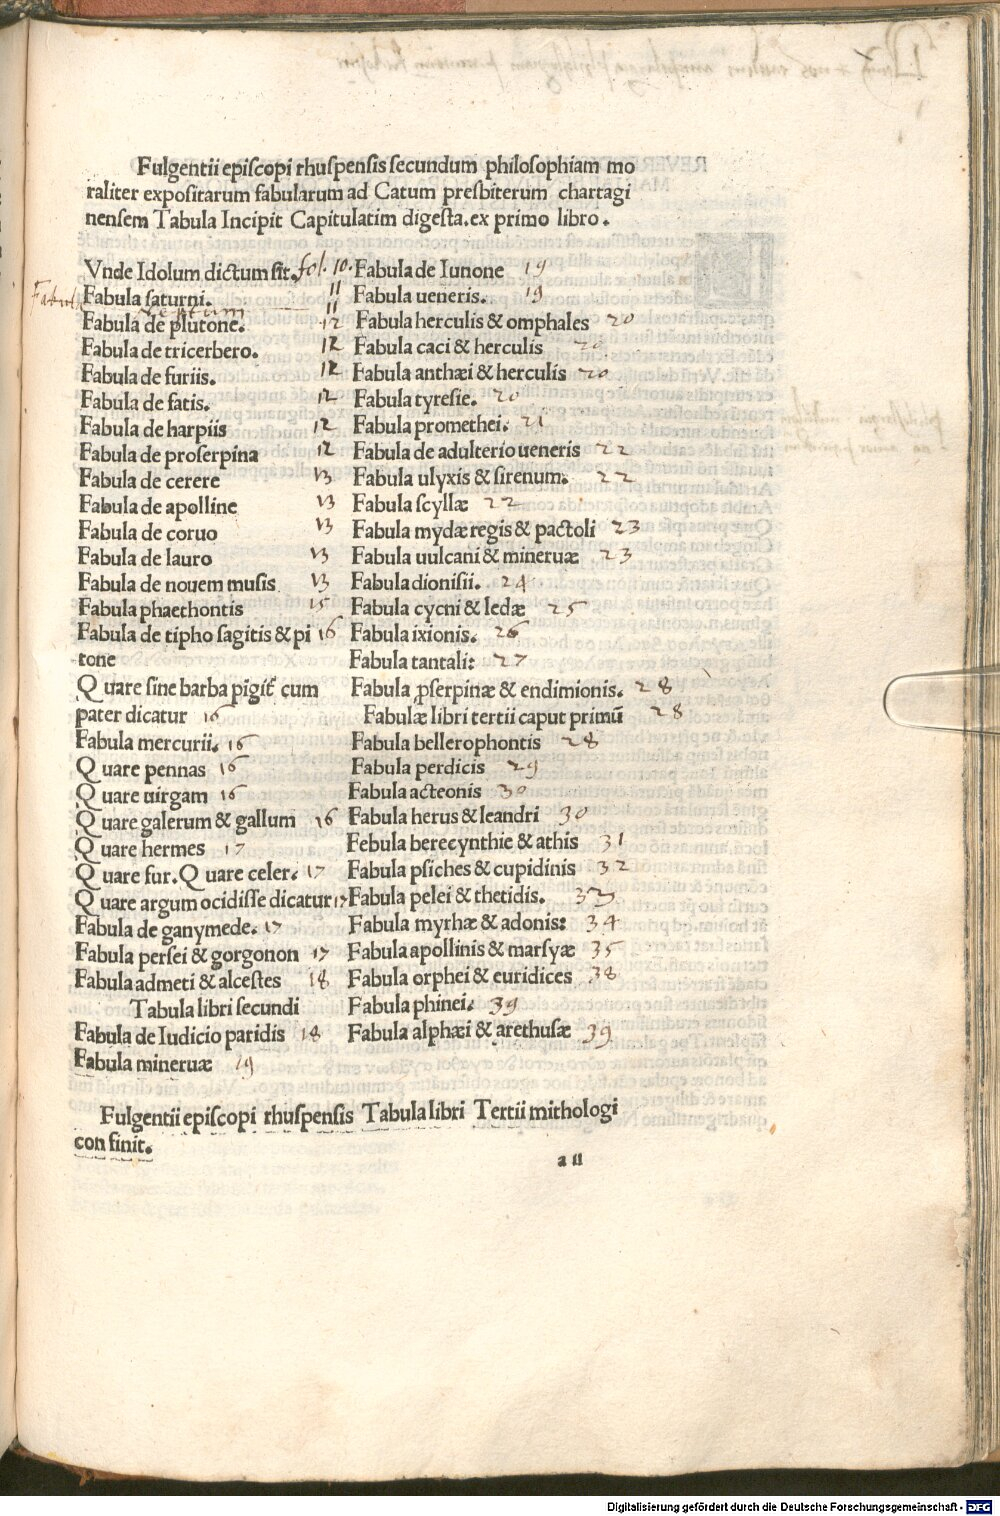 Fulgentii episcopi rhuspensis secundum philosophiam mo
raliter expositarum fabularum ad Catum presbiterum chartagi
nensem Tabula Incipit Capitulatim digesta.ex primo libro.
Vnde Idolum dictum sit. fol. 10.
Fabula saturni. 11
neptuni 11
Fabula de plutone. 12
Fabula de tricerbero. 12
Fabula de furiis. 12
Fabula de fatis. 12
Fabula de harpiis 12
Fabula de proserpina 12
Fabula de cerere 13
Fabula de apolline 13
Fabula de coruo 13
Fabula de lauro 13
Fabula de nouem musis 13
Fabula phaethontis 15
Fabula de tipho sagitis & pi 16
tone
Quare sine barba pigit cum
pater dicatur 16
Fabula mercurii. 16
Quare pennas 16
Quare uirgam 16
Quare galerum & gallum 16
Quare hermes 17
Quare fur. Quare celer. 17
Quare argum ocidisse dicatur 17
Fabula de ganymede. 17
Fabula persei & gorgonon 17
Fabula admeti & alcestes 18
Tabula libri secundi
Fabula de Iudicio paridis 18
Fabula mineruæ 19
Fabula de Iunone 19
Fabula ueneris. 19
Fabula herculis & omphales 20
Fabula caci & herculis 20
Fabula anthæi & herculis 20
Fabula tyresie. 20
Fabula promethei. 21
Fabula de adulterio ueneris 22
Fabula ulyxis & sirenum. 22
Fabula scyllæ 22
Fabula mydæ regis & pactoli 23
Fabula uulcani & mineruæ 23
Fabula dionisii. 24
Fabula cycni & ledæ 25
Fabula ixionis. 26
Fabula tantali: 27
Fabula ꝓserpinæ & endimionis. 28
Fabulæ libri tertii caput primū 28
Fabula bellerophontis 28
Fabula perdicis 29
Fabula acteonis 30
Fabula herus & leandri 30
Febula berecynthie & athis 31
Fabula psiches & cupidinis 32
Fabula pelei & thetidis. 33
Fabula myrhæ & adonis: 34
Fabula apollinis & marsyæ 35
Fabula orphei & euridices 38
Fabula phinei. 39
Fabula alphæi & arethusæ 39
Fulgentii episcopi rhuspensis Tabula libri Tertii mithologi
con finit.
a ii
Digitalisierung gefördert durch die Deutsche Forschungsgemeinschaft - DFG